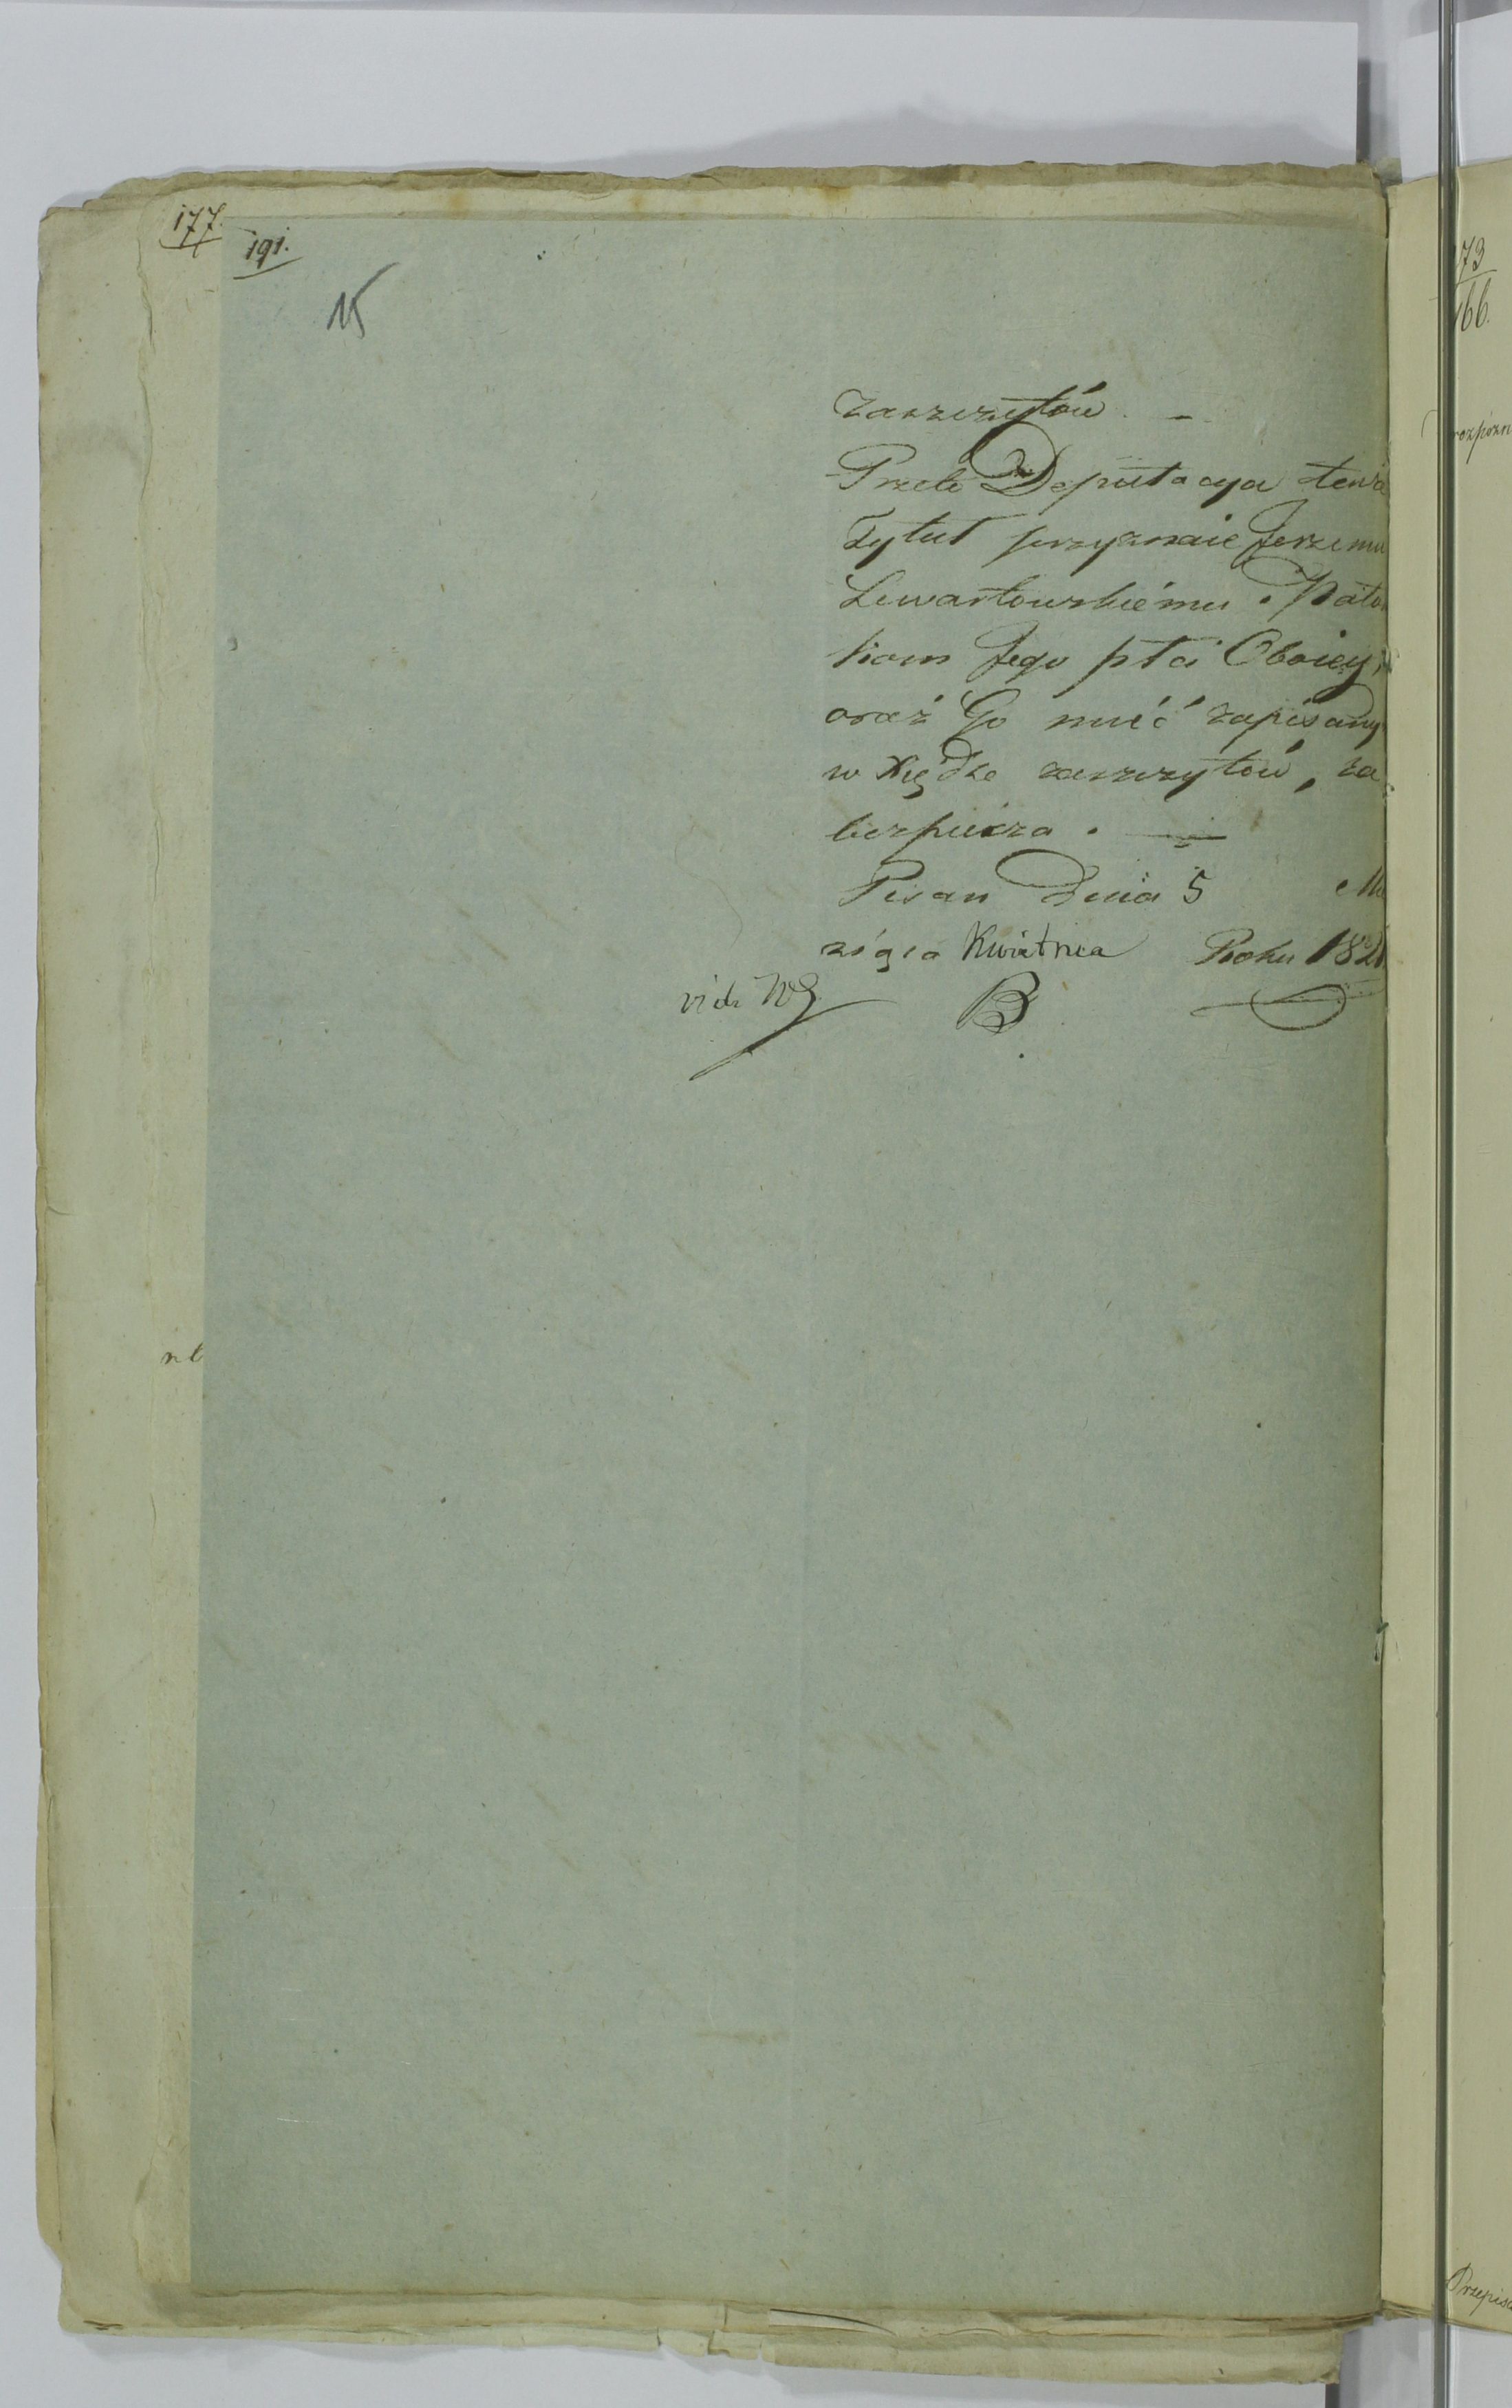 177.
191.
15
zaszczytów. –
Przeto Deputacya tenże
Tytuł przyznaie Jerzemu
Lewartowskiemu i Pato
kom Jego płci Oboiey,
oraz Go mieć zapisany
w Xiędze zaszczytów, za
bezpiecza. —
Pisan Dnia 5 Mie
siąca Kwietnia Roku 182
vidi
B
nt
73
166.
rozpozn
Przepisa